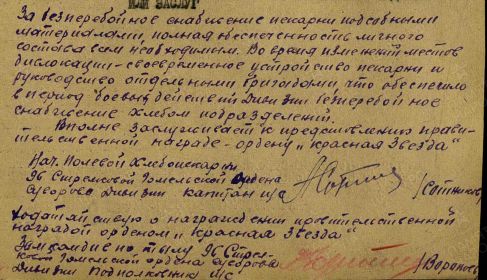 ИЛИ ЗАСЛУГ
За безперебойное снабжение пекарни подсобными
материалами, полная обеспеченность личного
состава всем необходимым. Во время изменений местов
дислокации - своевременное устройство пекарни и
руководство отдельными бригадами, что обеспечило
в период боевых действий Дивизии безперебойное
снабжение хлебом подразделений.
Вполне заслуживает к представлению прави-
тельственной награде - ордену "Красная Звезда"
Нач. Полевой Хлебопекарни
96 Стрелковой Гомельской Ордена
Суворова Дивизии капитан и/с /Сотников/
Ходатайствую о награждении правительственной
наградой орденом "Красная Звезда"
Замкомдив по тылу 96 Стрел-
ковой Гомельской ордена Суворова
Дивизии Подполковник и/с